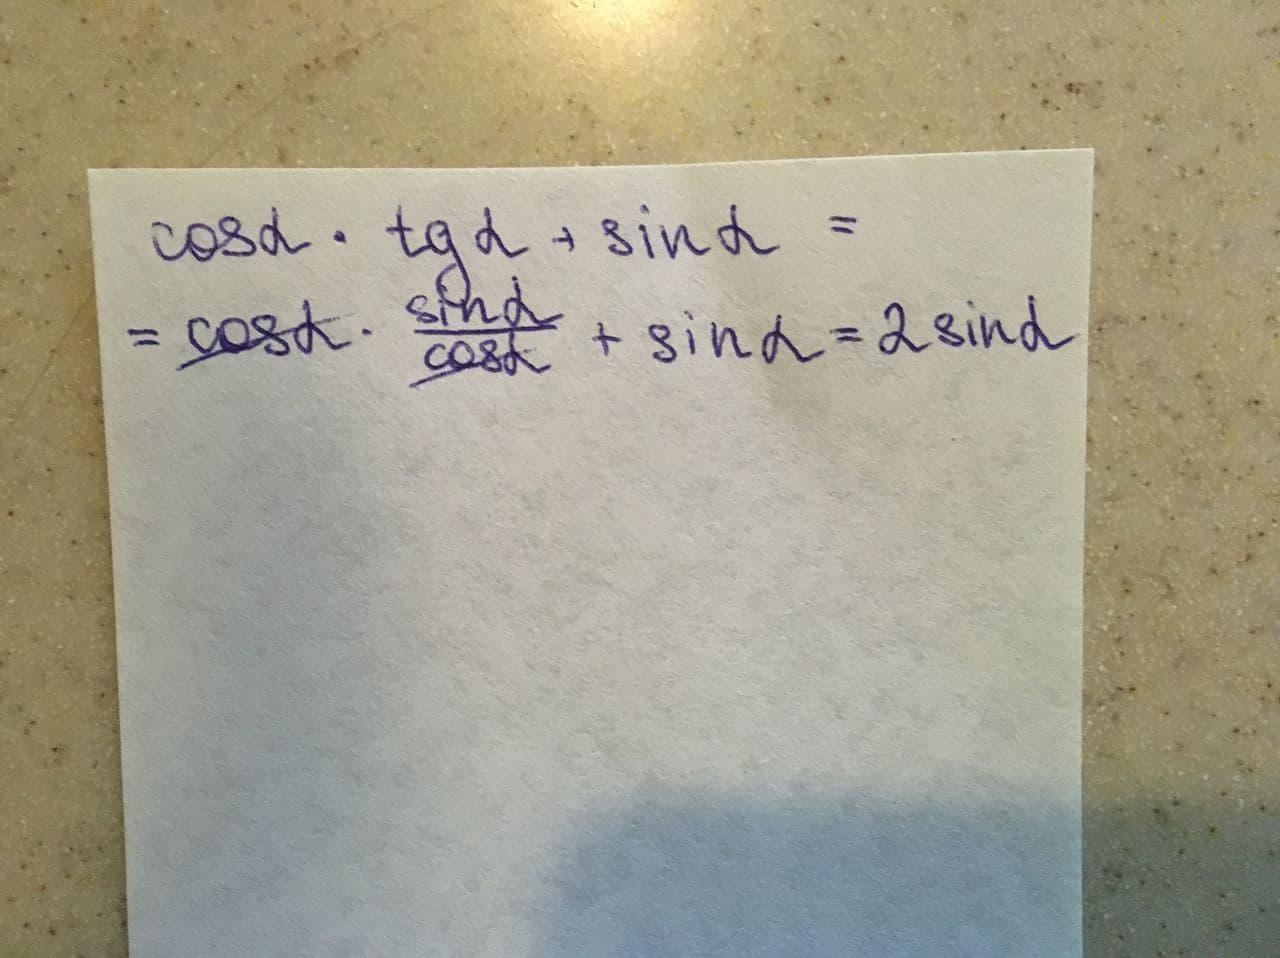 cosα · tgα + sinα =
= cosα · sinα/cosα + sinα = 2sinα